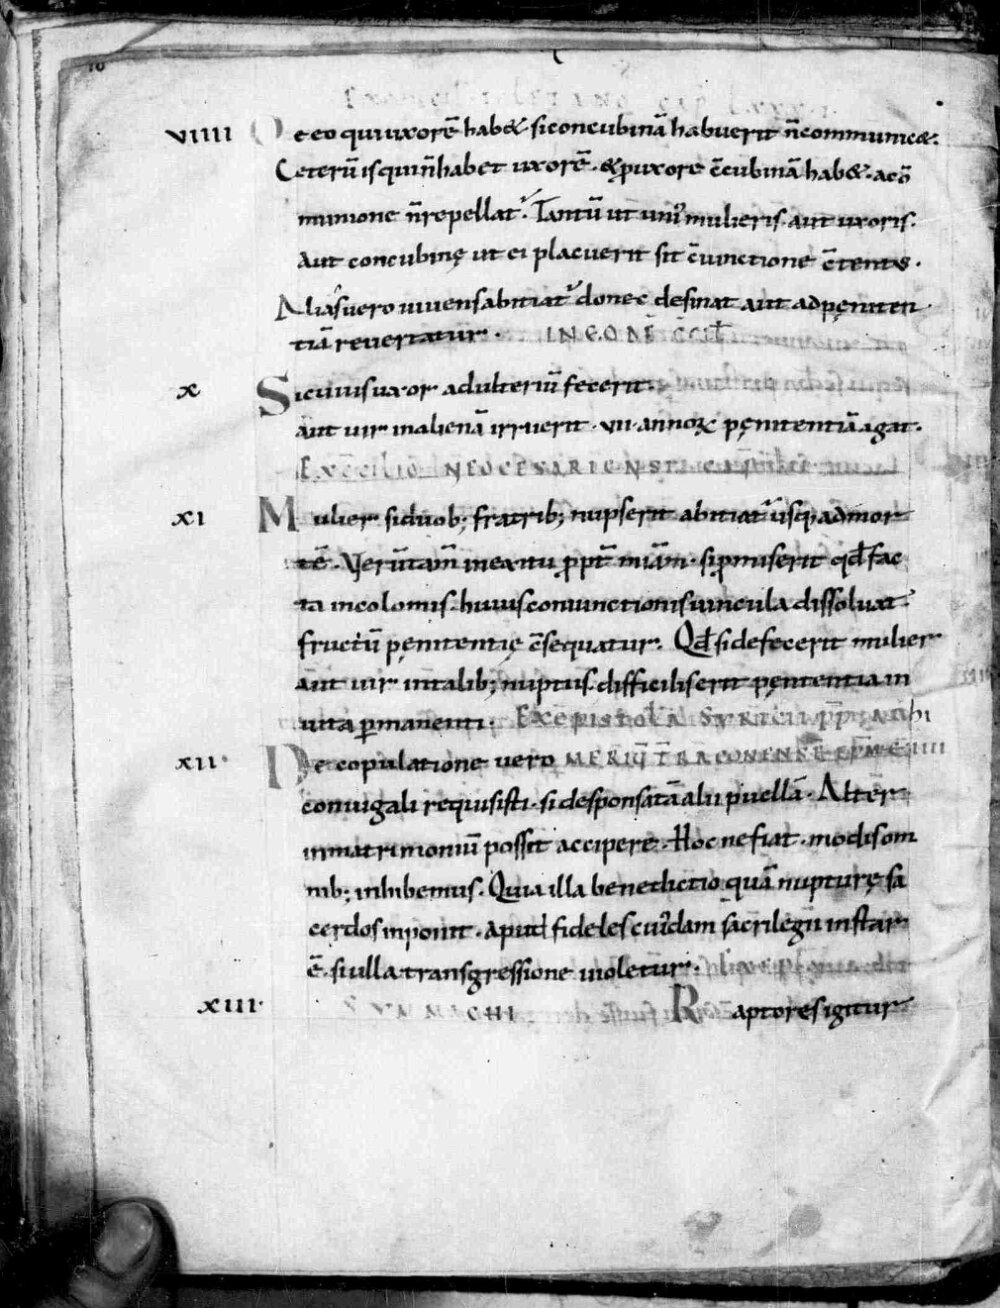 EX CONCIL TOLETANO CAP LXXXI.
VIIII De eo qui uxorē hab&. si concubinā habuerit n̄ communic&.
Ceterū is qui n̄ habet uxorē. & p uxore c̄cubinā hab&. a cō
munione n̄ repellat᷑. Tantū ut uniꝰ mulieris. aut uxoris.
Aut concubinę ut ei placuerit sit c̄iunctione c̄tentꝰ.
Aliaś uero uiuens abitiat᷑ donec desinat aut ad pęniten
tiā reuertatur. IN CON
X Si cuius uxor adulteriū fecerit.
aut uir in alienā irruerit. VII. annoꝝ pęnitentiā agat.
EX C̄CILIO NEOCESARIENSI
XI Mulier si duob; fratrib; nupserit abitiat᷑ usq; ad mor
tē. Verūtam̄ in exitu ꝓpt̄ miām. si ꝓmiserit qđ fac
ta incolomis. huius coniunctionis uincula dissoluat.
fructū pęnitentię c̄sequatur. Qđ si defecerit mulier
aut uir in talib; nuptiis. difficilis erit pęnitentia in
uita ꝑmanenti. EX EPISTOLA SYRICII PP
XII De copulatione uero
coniugali requisisti. si desponsatā alii puellā. Alter
in matrimoniū possit accipere. Hoc ne fiat. modis om
nib; inhibemus. Quia illa benedictio quā nupturę sa
cerdos inponit. apud fideles cuiꝰdam sacrilegii instar
ē. si ulla transgressione uioletur.
XIII Raptores igitur